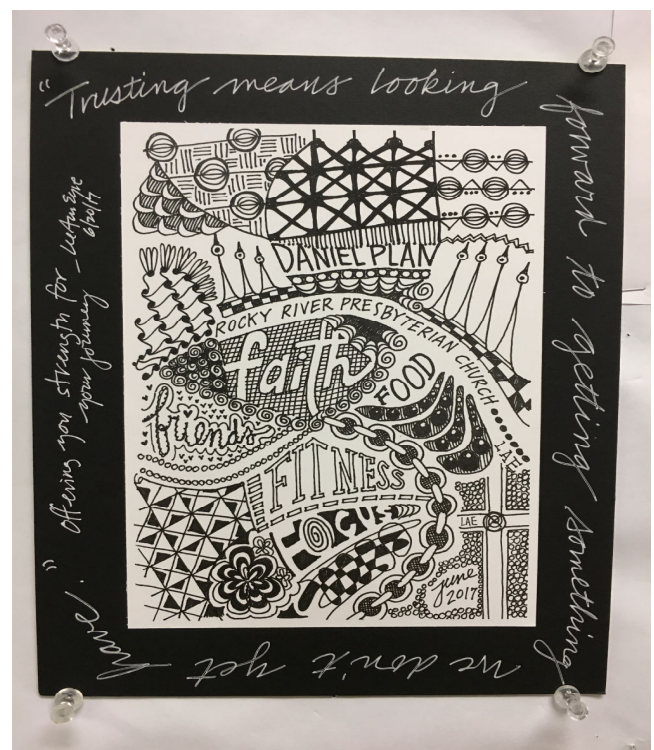 "Trusting means looking
forward to getting something
we don't yet
have."
Offering you strength for
your journey
6/20/17
DANIEL PLAN
ROCKY RIVER PRESBYTERIAN CHURCH
LAE
faith
FOOD
friends
FITNESS
FOCUS
LAE
june
2017